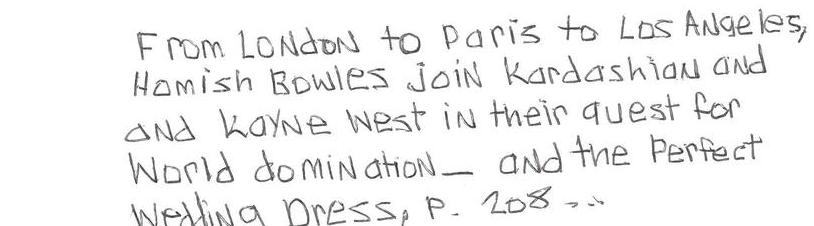 From LONdON to paris to Los ANgeles,
Hamish Bowles joiN Kardashian and
aNd KayNe West iN their quest for
World domiNation_ and the Perfect
Wedding Dress, P. 208 ...